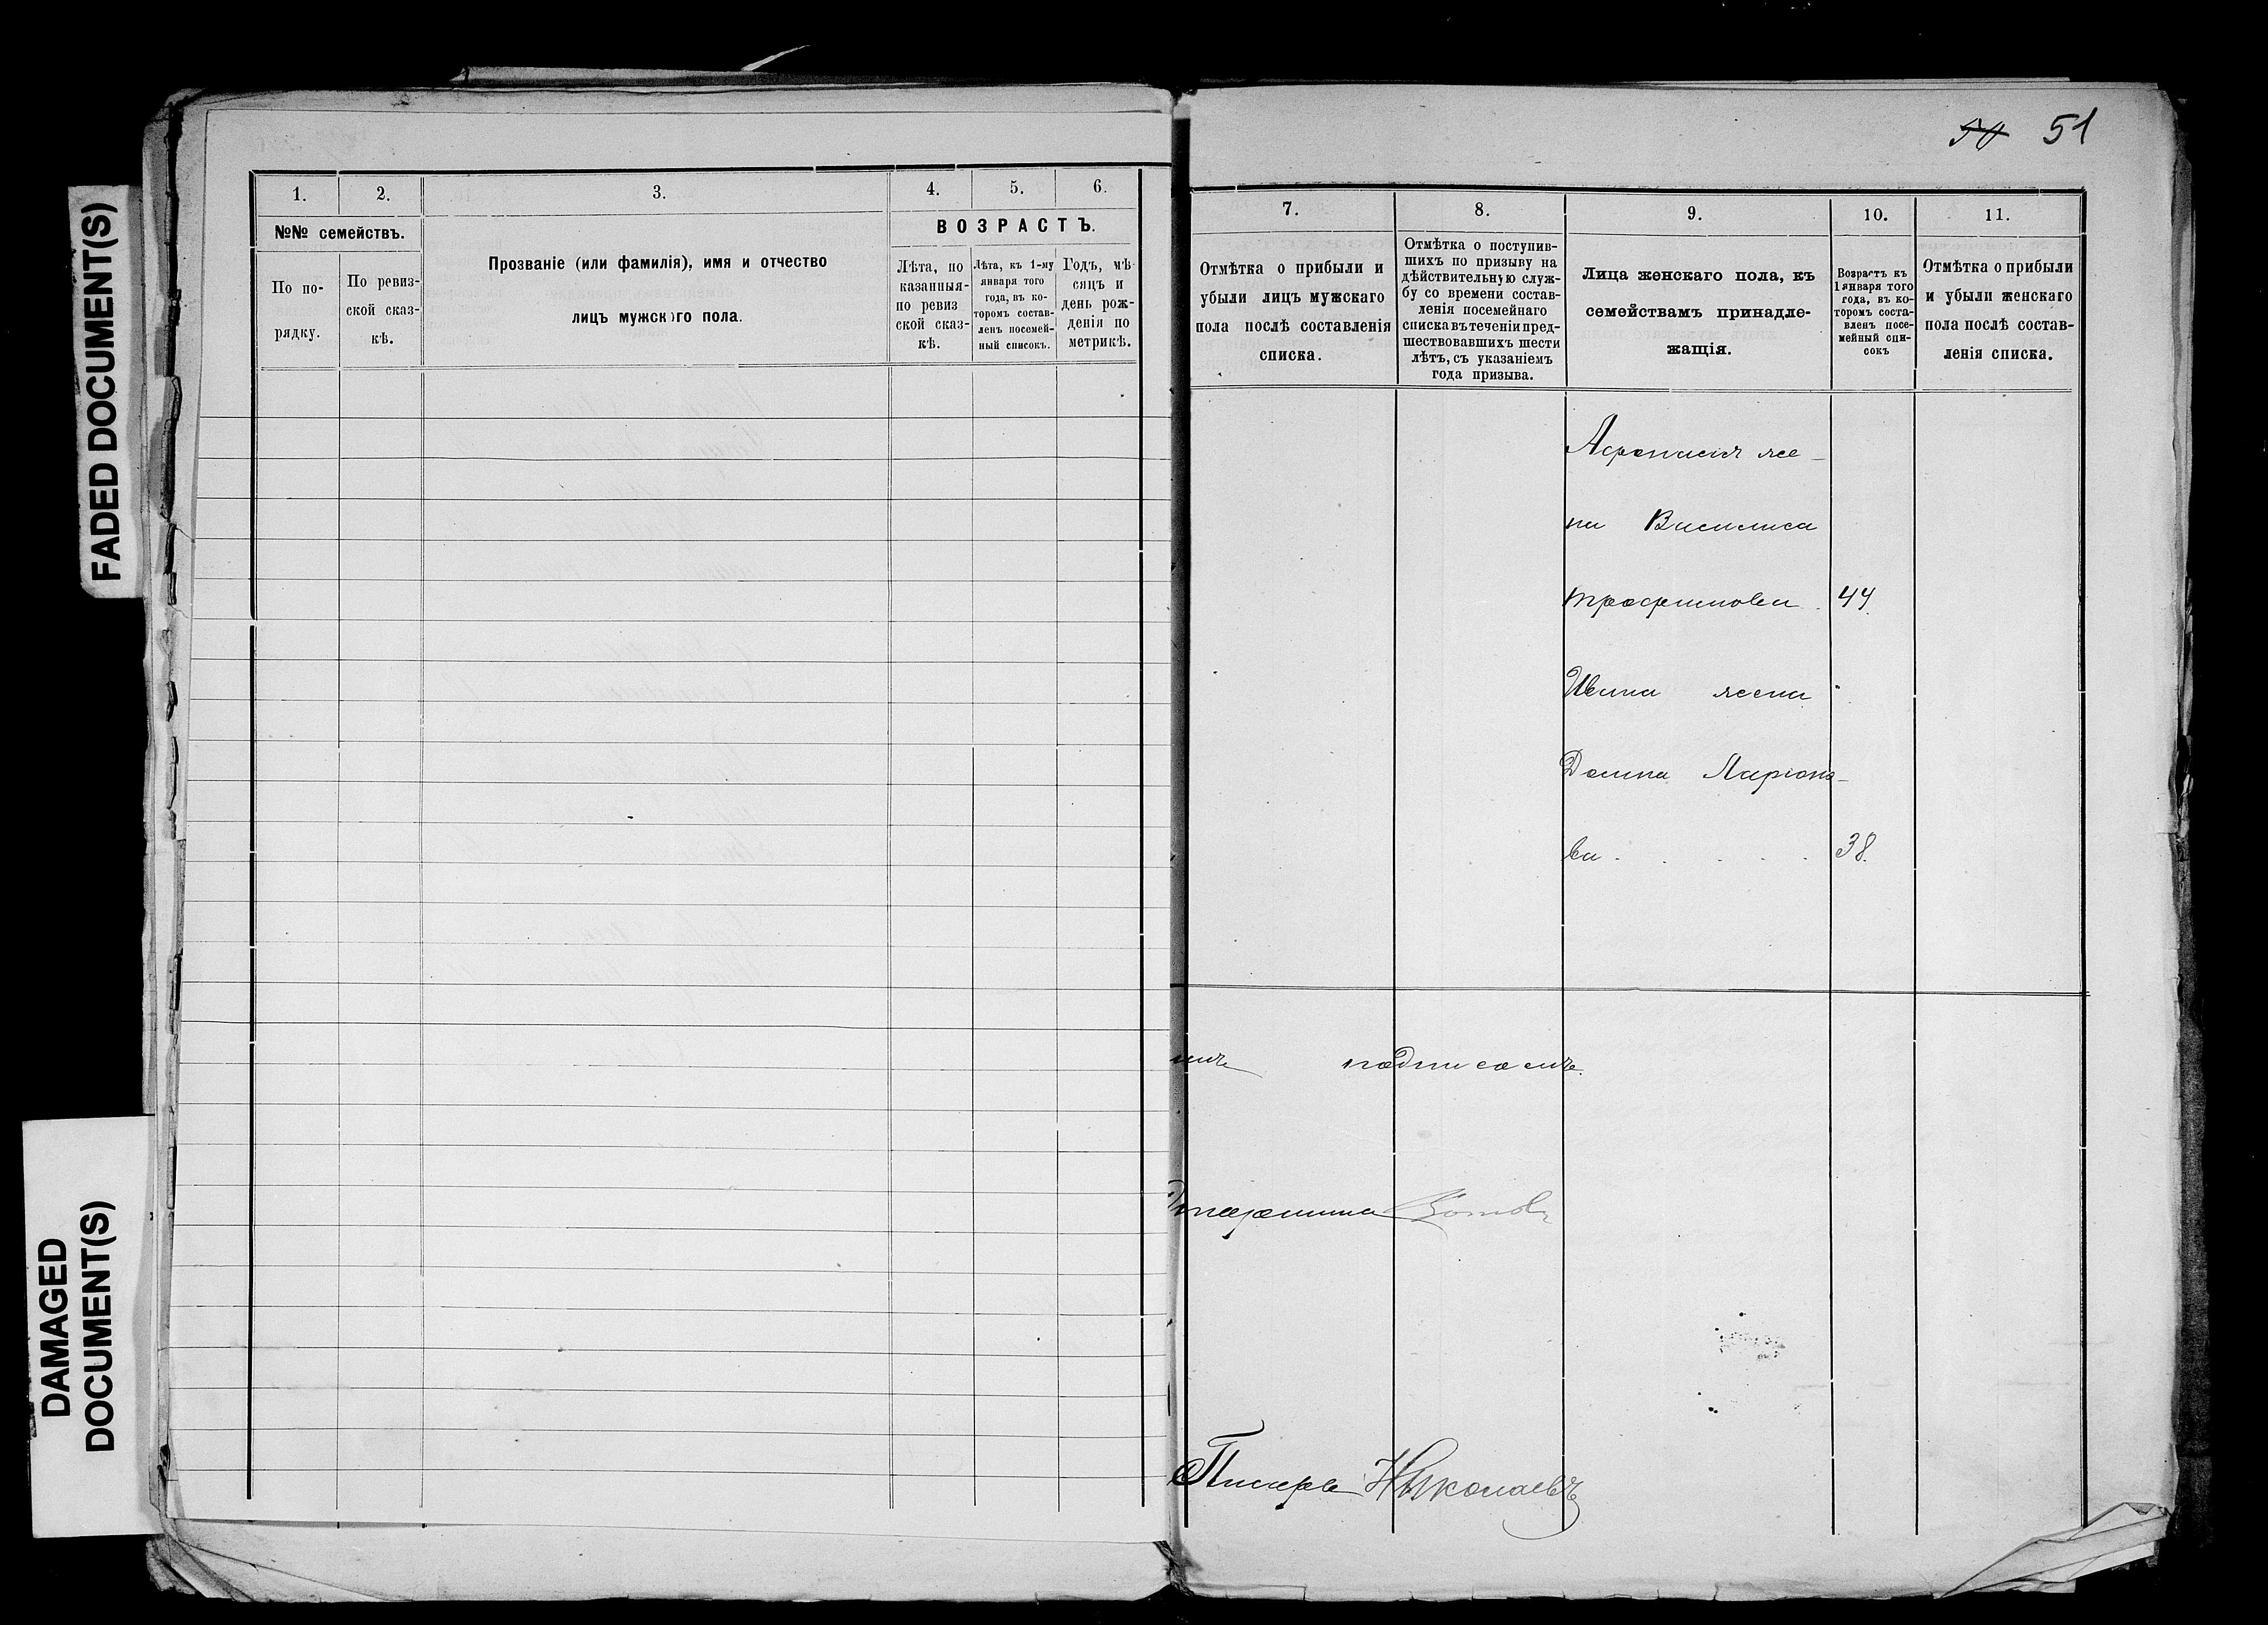 FADED DOCUMENT(S)
DAMAGED
DOCUMENT(S)
1.
2.
3.
4.
5.
6.
№№ семействъ.
ВОЗРАСТЪ.
По по-
рядку.
По ревиз-
ской сказ-
кѣ.
Прозваніе (или фамилія), имя и отчество
лицъ мужского пола.
Лѣта, по
казанныя
по ревиз
ской сказ-
кѣ.
Лѣта, къ 1-му
января того
года, въ ко-
торомъ состав-
ленъ посемей-
ный списокъ.
Годъ, мѣ-
сяцъ и
день рож-
денія по
метрикѣ.
50 51
7.
8.
9.
10.
11.
Отмѣтка о прибыли и
убыли лицъ мужскаго
пола послѣ составленія
списка.
Отмѣтка о поступив-
шихъ по призыву на
дѣйствительную служ-
бу со времени состав-
ленія посемейнаго
списка въ теченіи пред-
шествовавшихъ шести
лѣтъ, съ указаніемъ
года призыва.
Лица женскаго пола, къ
семействамъ принадле-
жащія.
Возрастъ къ
1 января того
года, въ ко-
торомъ соста-
вленъ посе-
мейный спи-
сокъ
Отмѣтка о прибыли
и убыли женскаго
пола послѣ состав-
ленія списка.
Афонасія же-
на Василиса
трофимова 44
Ивана жена
Домна Ларіоно-
ва 38.
подписомъ.
Старшина Котовъ
Писарь Николаевъ